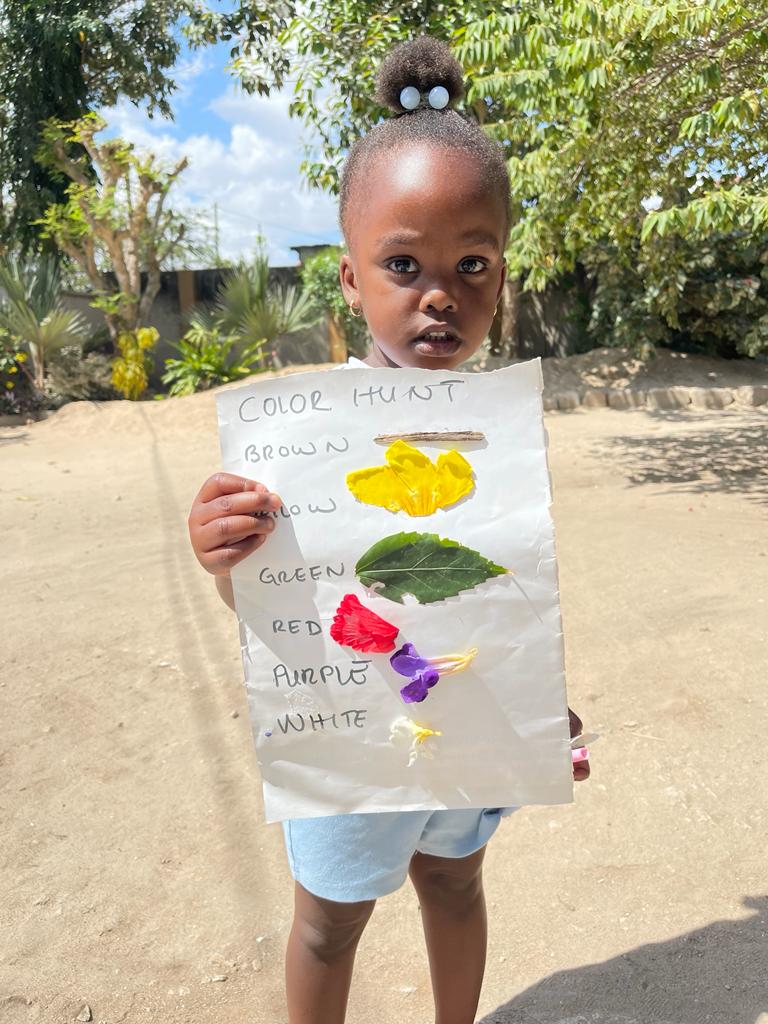 COLOR HUNT
BROWN
GREEN
RED
PURPLE
WHITE